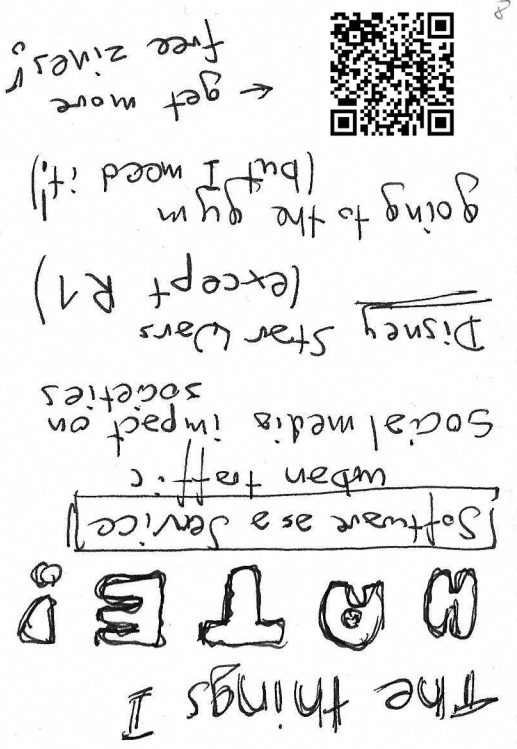 The things I
HATE!
Software as a Service
urban traffic
Social media impact on
societies
Disney Star Wars
(except R1)
going to the gym
(but I need it!)
← get more
free zines!
8